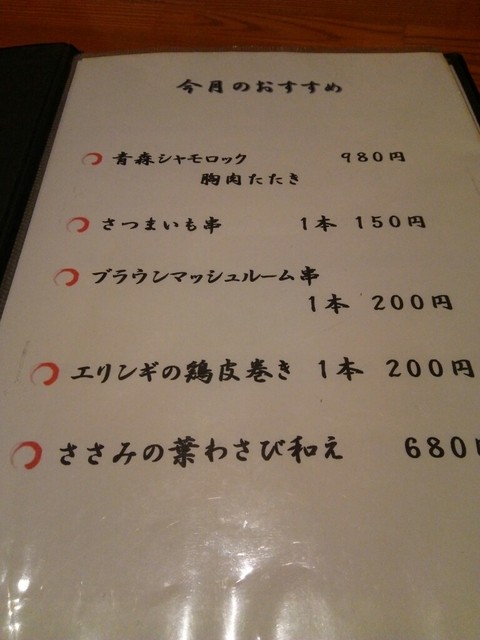 今月のおすすめ
青森シャモロック 980円
胸肉たたき
さつまいも串 1本 150円
ブラウンマッシュルーム串
1本 200円
エリンギの鶏皮巻き 1本 200円
ささみの葉わさび和え 680円